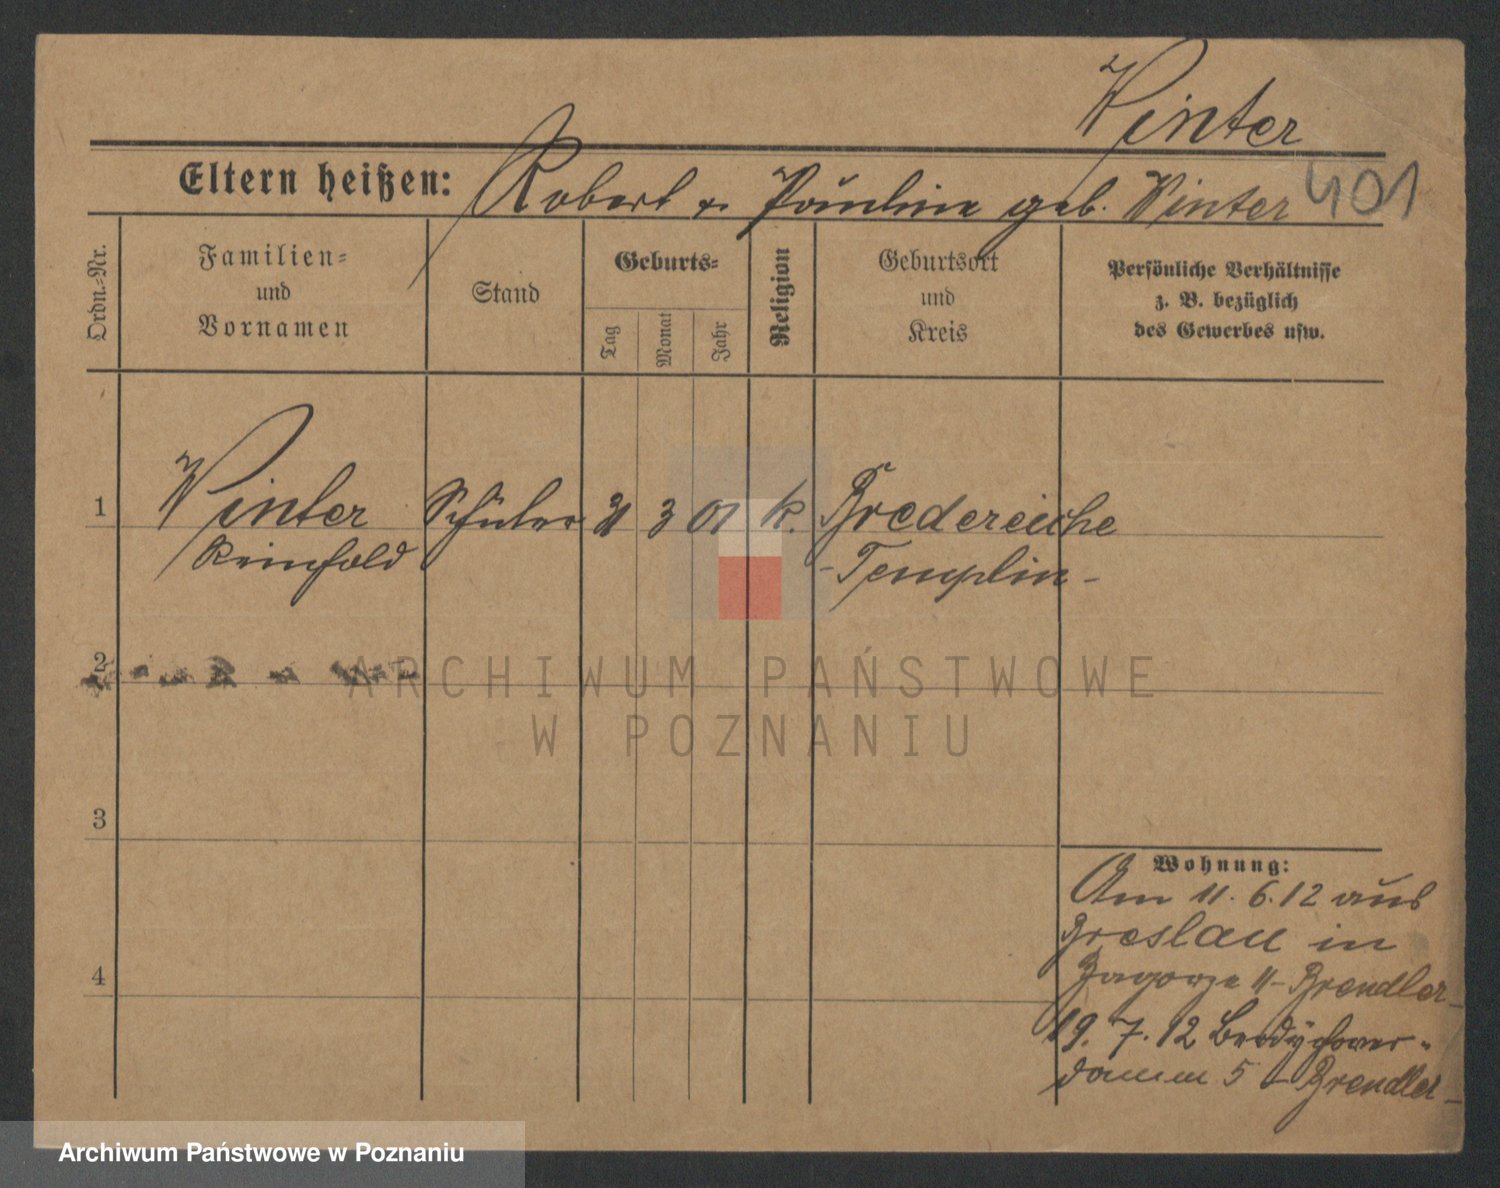 Winter
Eltern heißen: Robert u. Pauline geb. Winter 401
Ordn.-Nr.
Familien- und Vornamen
Stand
Geburts-
Tag
Monat
Jahr
Religion
Geburtsort und Kreis
Persönliche Verhältnisse
z. B. bezüglich
des Gewerbes usw.
1 Winter Schüler 31 3 01 k. Bredereiche
Reinhold -Templin-
2
3
4
Wohnung:
Am 11. 6. 12 aus
Breslau in
Zagorze 11 - Brendler -
19. 7. 12 Berdychower-
damm 5 - Brendler -
ARCHIWUM PAŃSTWOWE
W POZNANIU
Archiwum Państwowe w Poznaniu